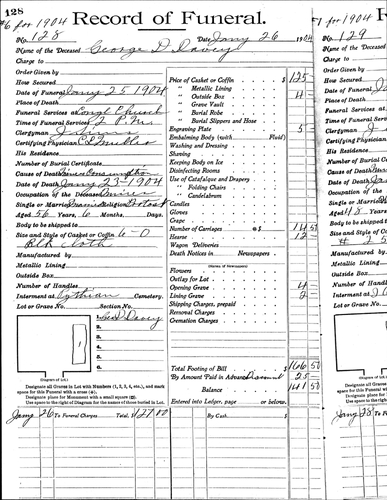 128
#6 for 1904
Record of Funeral.
No. 128 Date Jany 26 1904
Name of the Deceased George D. Davey
Charge to
Order Given by
Date of Funeral Jany 25 1904
Place of Death
Funeral Services at
Time of Funeral Service 2 P.M.
Clergyman
Certifying Physician
His Residence
Number of Burial Certificate
Cause of Death Consumption
Date of Death Jany 23 - 1904
Occupation of the Deceased Miner
Single or Married Religion
Aged 56 Years, 6 Months, Days.
Body to be shipped to
Size and Style of Casket or Coffin 6-0
Blk Cloth
Manufactured by
Metallic Lining
Outside Box
Number of Handles
Interment at Pythian Cemetery.
Lot or Grave No. Section No.
Geo D Davey
1.
2.
3.
4.
5.
6.
(Diagram of Lot.)
Designate all Graves in Lot with Numbers (1, 2, 3, 4, etc.), and mark
space for this Funeral with a cross (+).
Designate place for Monument with a small square (□).
Use space to the right of Diagram for the names of those buried in Lot.
Price of Casket or Coffin $ 125
" Metallic Lining
" Outside Box 4
" Grave Vault
" Burial Robe
" Burial Slippers and Hose
Engraving Plate 5
Embalming Body (with Fluid)
Washing and Dressing
Shaving
Keeping Body on Ice
Disinfecting Rooms
Use of Catafalque and Drapery
" Folding Chairs
" Candelabrum
Candles
Gloves
Crape
Number of Carriages @ $ 14 50
Hearse 12
Wagon Deliveries
Death Notices in Newspapers
(Names of Newspapers)
Flowers
Outlay for Lot
Opening Grave 4
Lining Grave 2
Shipping Charges, prepaid
Removal Charges
Cremation Charges
Total Footing of Bill $ 166 50
By Amount Paid in Advance Discount 25
Balance 141 50
Entered into Ledger, page or below.
Jany 26 To Funeral Charges Total, $ 127.00 By Cash $
1 1904
No. 129
Name of the
Charge to
Order Given by
Date of Funeral
Place of Death
Funeral Services at
Time of Funeral
Clergyman
Certifying Phy
His Residence
Number of Burial
Cause of Death
Date of Death
Occupation of the
Single or Married
Aged 48 Years
Body to be shipped
Size and Style of
Manufactured by
Metallic Lining
Outside Box
Number of Handles
Interment at
Lot or Grave No.
(Diagram of Lot.)
Jany 28 To Fune